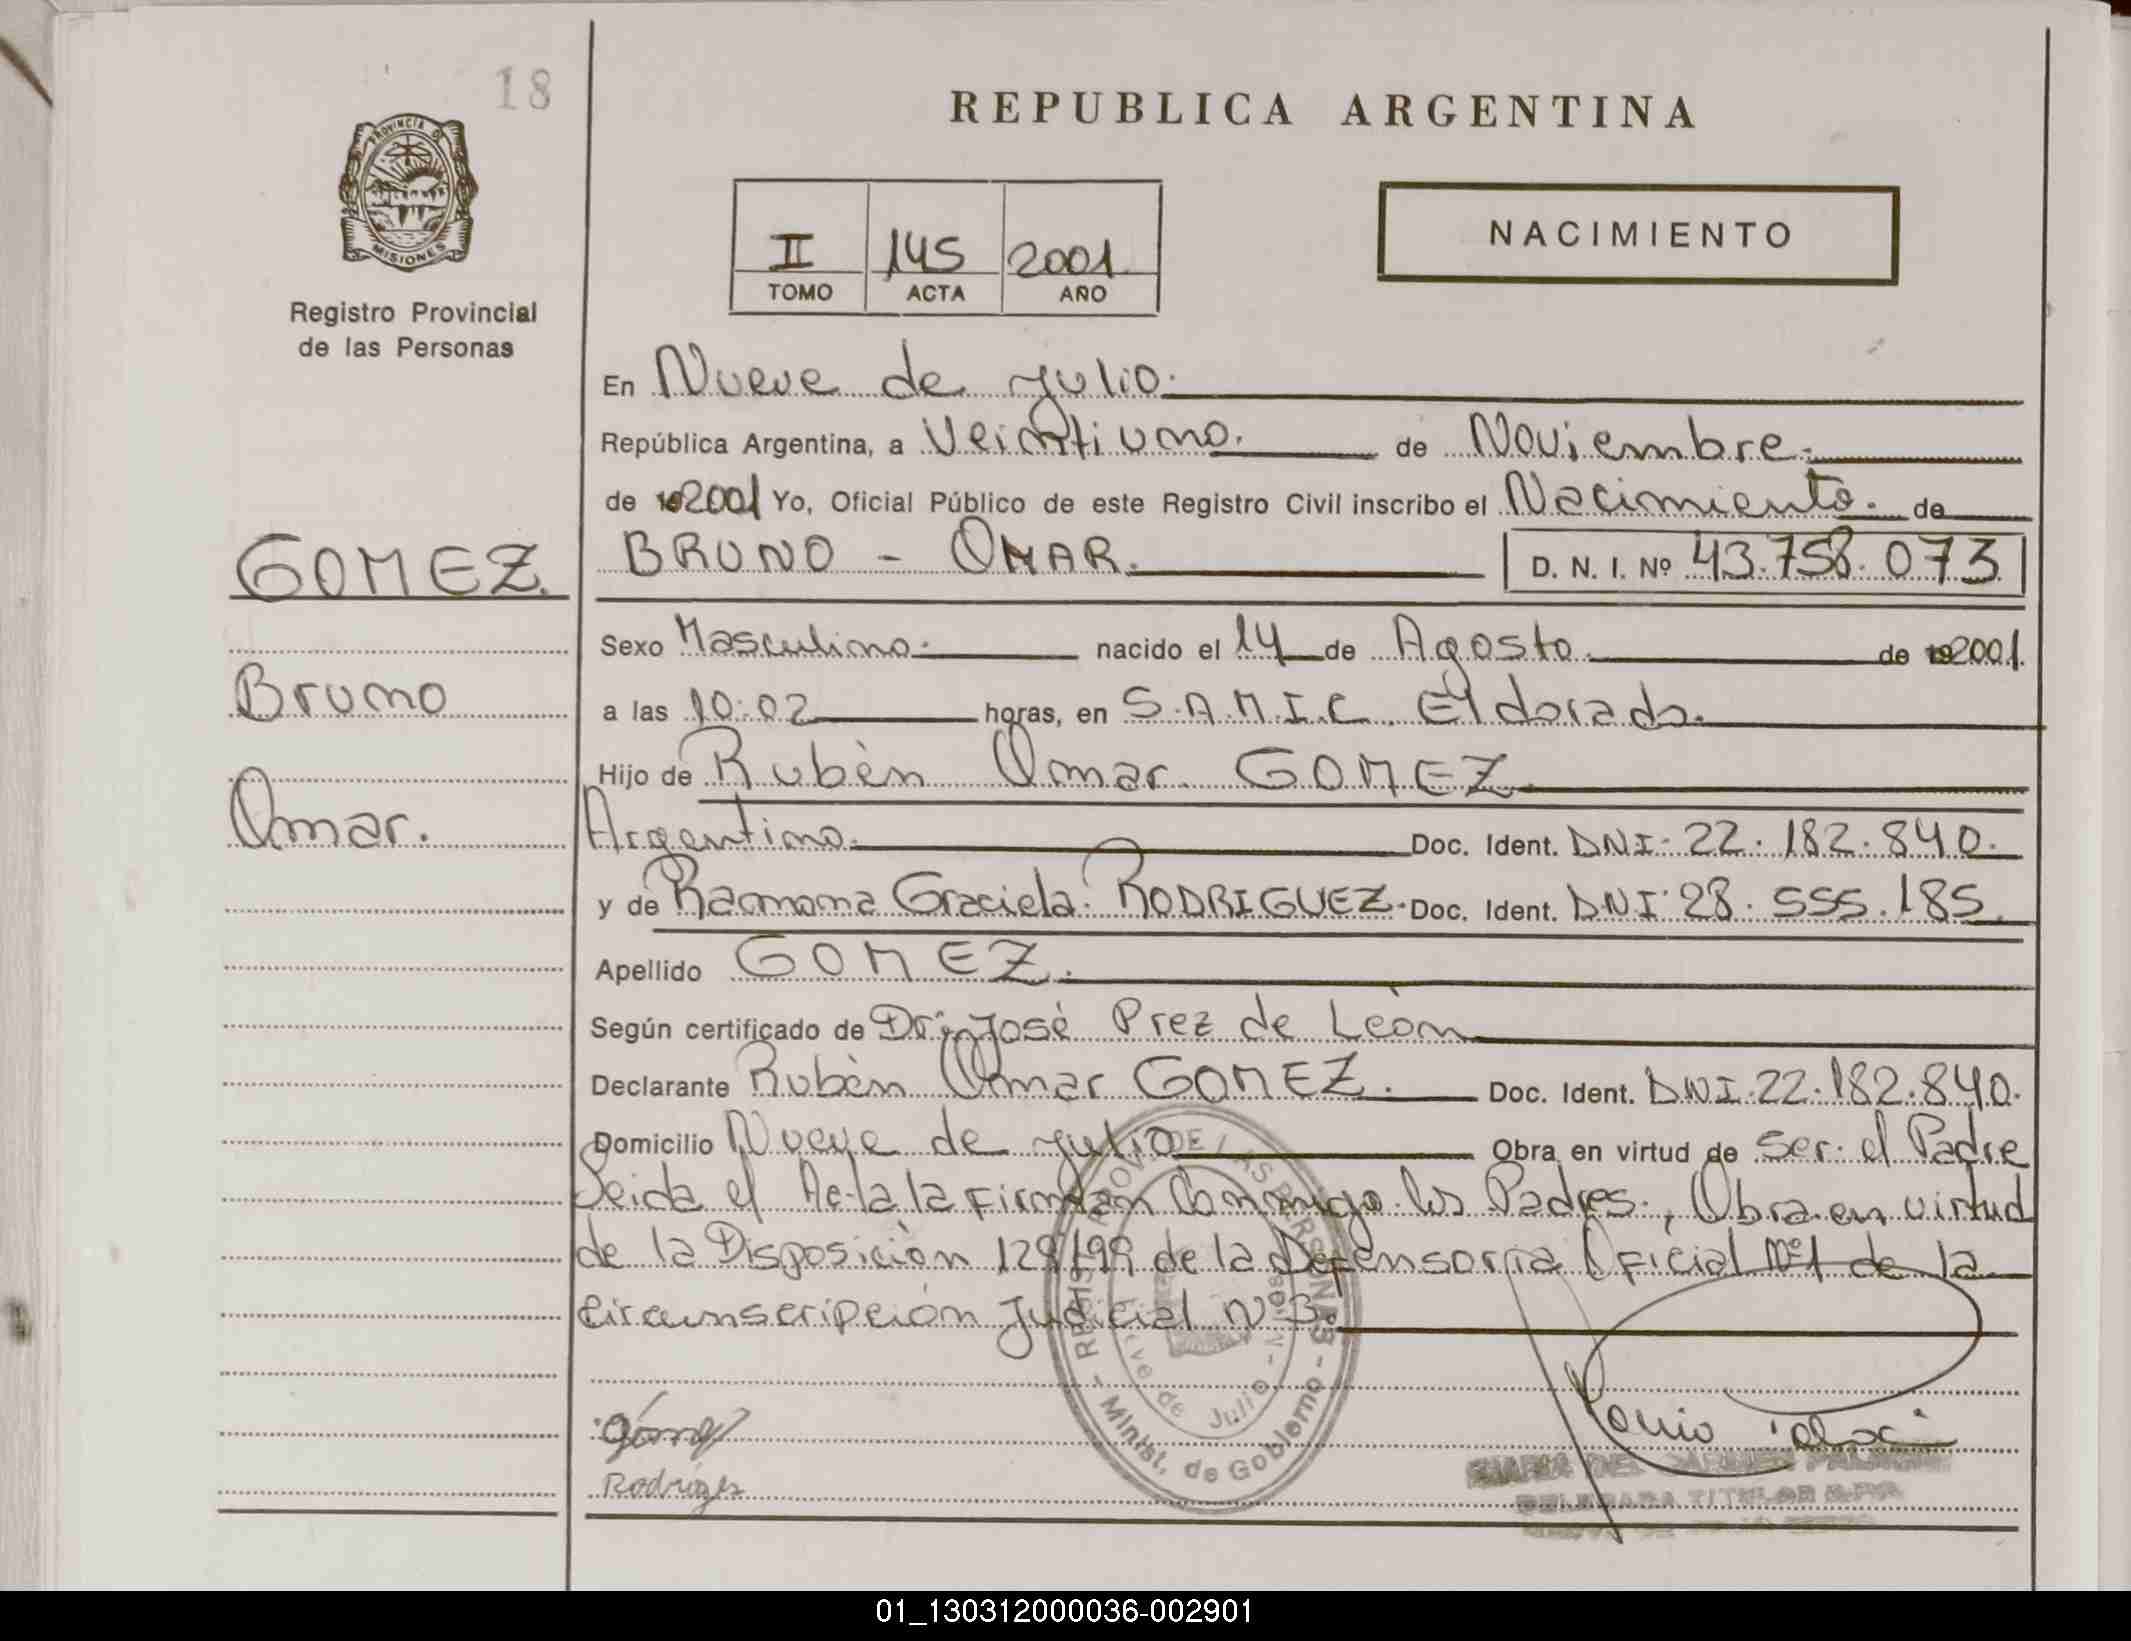 18
REPUBLICA ARGENTINA
PROVINCIA DE MISIONES
Registro Provincial
de las Personas
II 145 2001
TOMO ACTA AÑO
NACIMIENTO
En Nueve de Julio.
República Argentina, a Veintiuno. de Noviembre.
de 192001 Yo, Oficial Público de este Registro Civil inscribo el Nacimiento. de
GOMEZ.
BRUNO - OMAR. D. N. I. Nº 43.758.073
Sexo Masculino. nacido el 14 de Agosto. de 192001.
Bruno
a las 10:02 horas, en S.A.M.I.C. Eldorado.
Hijo de Rubèn Omar GOMEZ
Omar.
Argentino. Doc. Ident. DNI. 22.182.840.
y de Ramona Graciela RODRIGUEZ. Doc. Ident. DNI 28.555.185
Apellido GOMEZ.
Según certificado de Dr. José Prez de Leòn
Declarante Rubèn Omar GOMEZ. Doc. Ident. DNI.22.182.840.
Domicilio Nueve de Julio Obra en virtud de Ser el Padre
Leida el Acta la Firman Conmigo los Padres, Obra en virtud
de la Disposiciòn 129/99 de la Defensoria Oficial Nº1 de la
Circunscripción Judicial Nº3.
Gómez
Rodrigez
Minist. de Gobierno
DELEGADA TITULAR
01_130312000036-002901